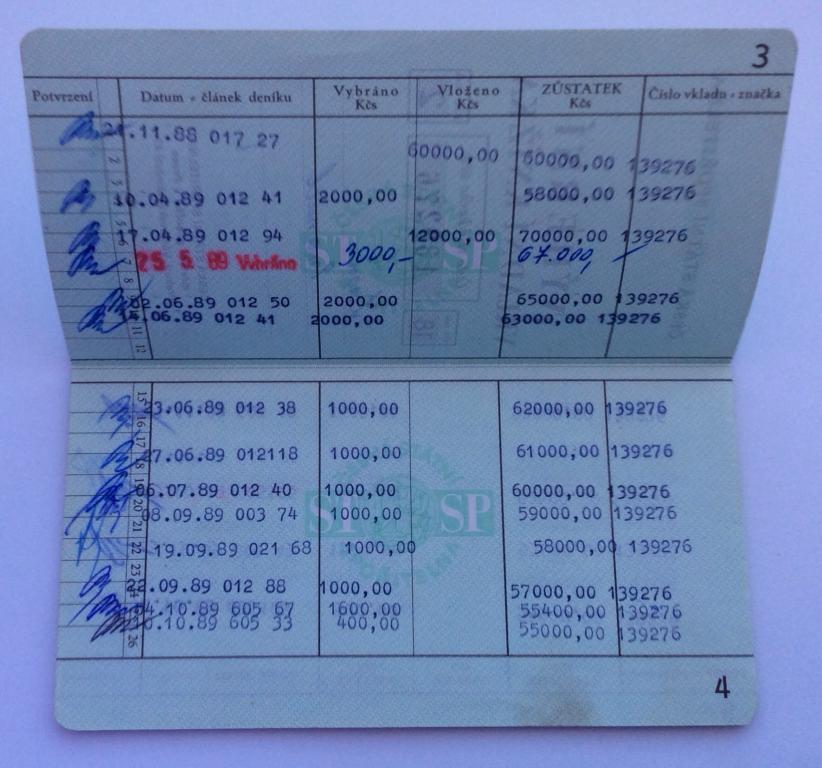 3
Potvrzení Datum - článek deníku Vybráno Kčs Vloženo Kčs ZŮSTATEK Kčs Číslo vkladu - značka
.11.88 017 27 60000,00 60000,00 139276
10.04.89 012 41 2000,00 58000,00 139276
17.04.89 012 94 12000,00 70000,00 139276
25 5. 89 Vybráno 3000,- 67.000,-
02.06.89 012 50 2000,00 65000,00 139276
14.06.89 012 41 2000,00 63000,00 139276
23.06.89 012 38 1000,00 62000,00 139276
27.06.89 012118 1000,00 61000,00 139276
06.07.89 012 40 1000,00 60000,00 139276
ST SP
08.09.89 003 74 1000,00 59000,00 139276
19.09.89 021 68 1000,00 58000,00 139276
.09.89 012 88 1000,00 57000,00 139276
.10.89 605 67 1600,00 55400,00 139276
.10.89 605 33 400,00 55000,00 139276
4